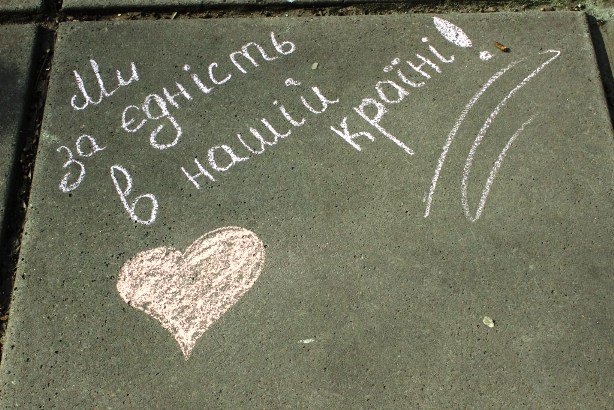 Ми
за єдність
в нашій країні!